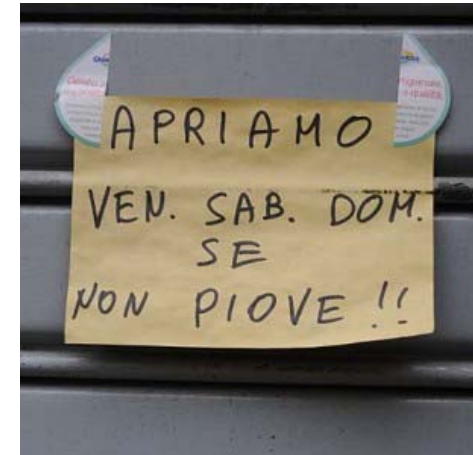 APRIAMO
VEN. SAB. DOM.
SE
NON PIOVE !!